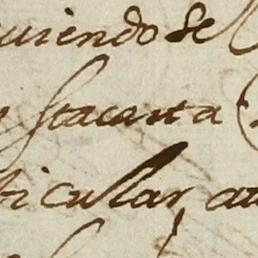 uiendose
sta carta
ticular, au